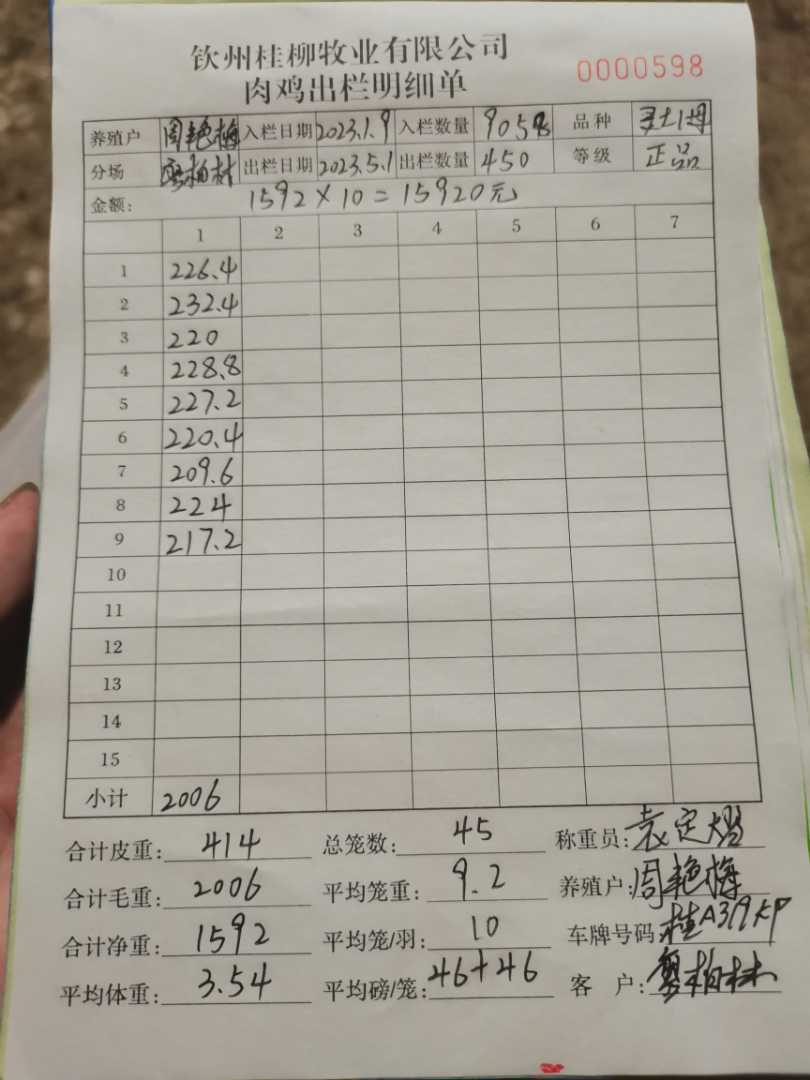 钦州桂柳牧业有限公司
肉鸡出栏明细单 0000598
养殖户 周艳梅 入栏日期 2023.1.9 入栏数量 905 品种
分场 出栏日期 2023.5.1 出栏数量 450 等级 正品
金额: 1592×10=15920元
1 2 3 4 5 6 7
1 226.4
2 232.4
3 220
4 228.8
5 227.2
6 220.4
7 209.6
8 224
9 217.2
10
11
12
13
14
15
小计 2006
合计皮重: 414 总笼数: 45 称重员: 袁定
合计毛重: 2006 平均笼重: 9.2 养殖户: 周艳梅
合计净重: 1592 平均笼/羽: 10 车牌号码: 桂A319KP
平均体重: 3.54 平均磅/笼: 46+46 客 户: 柏林